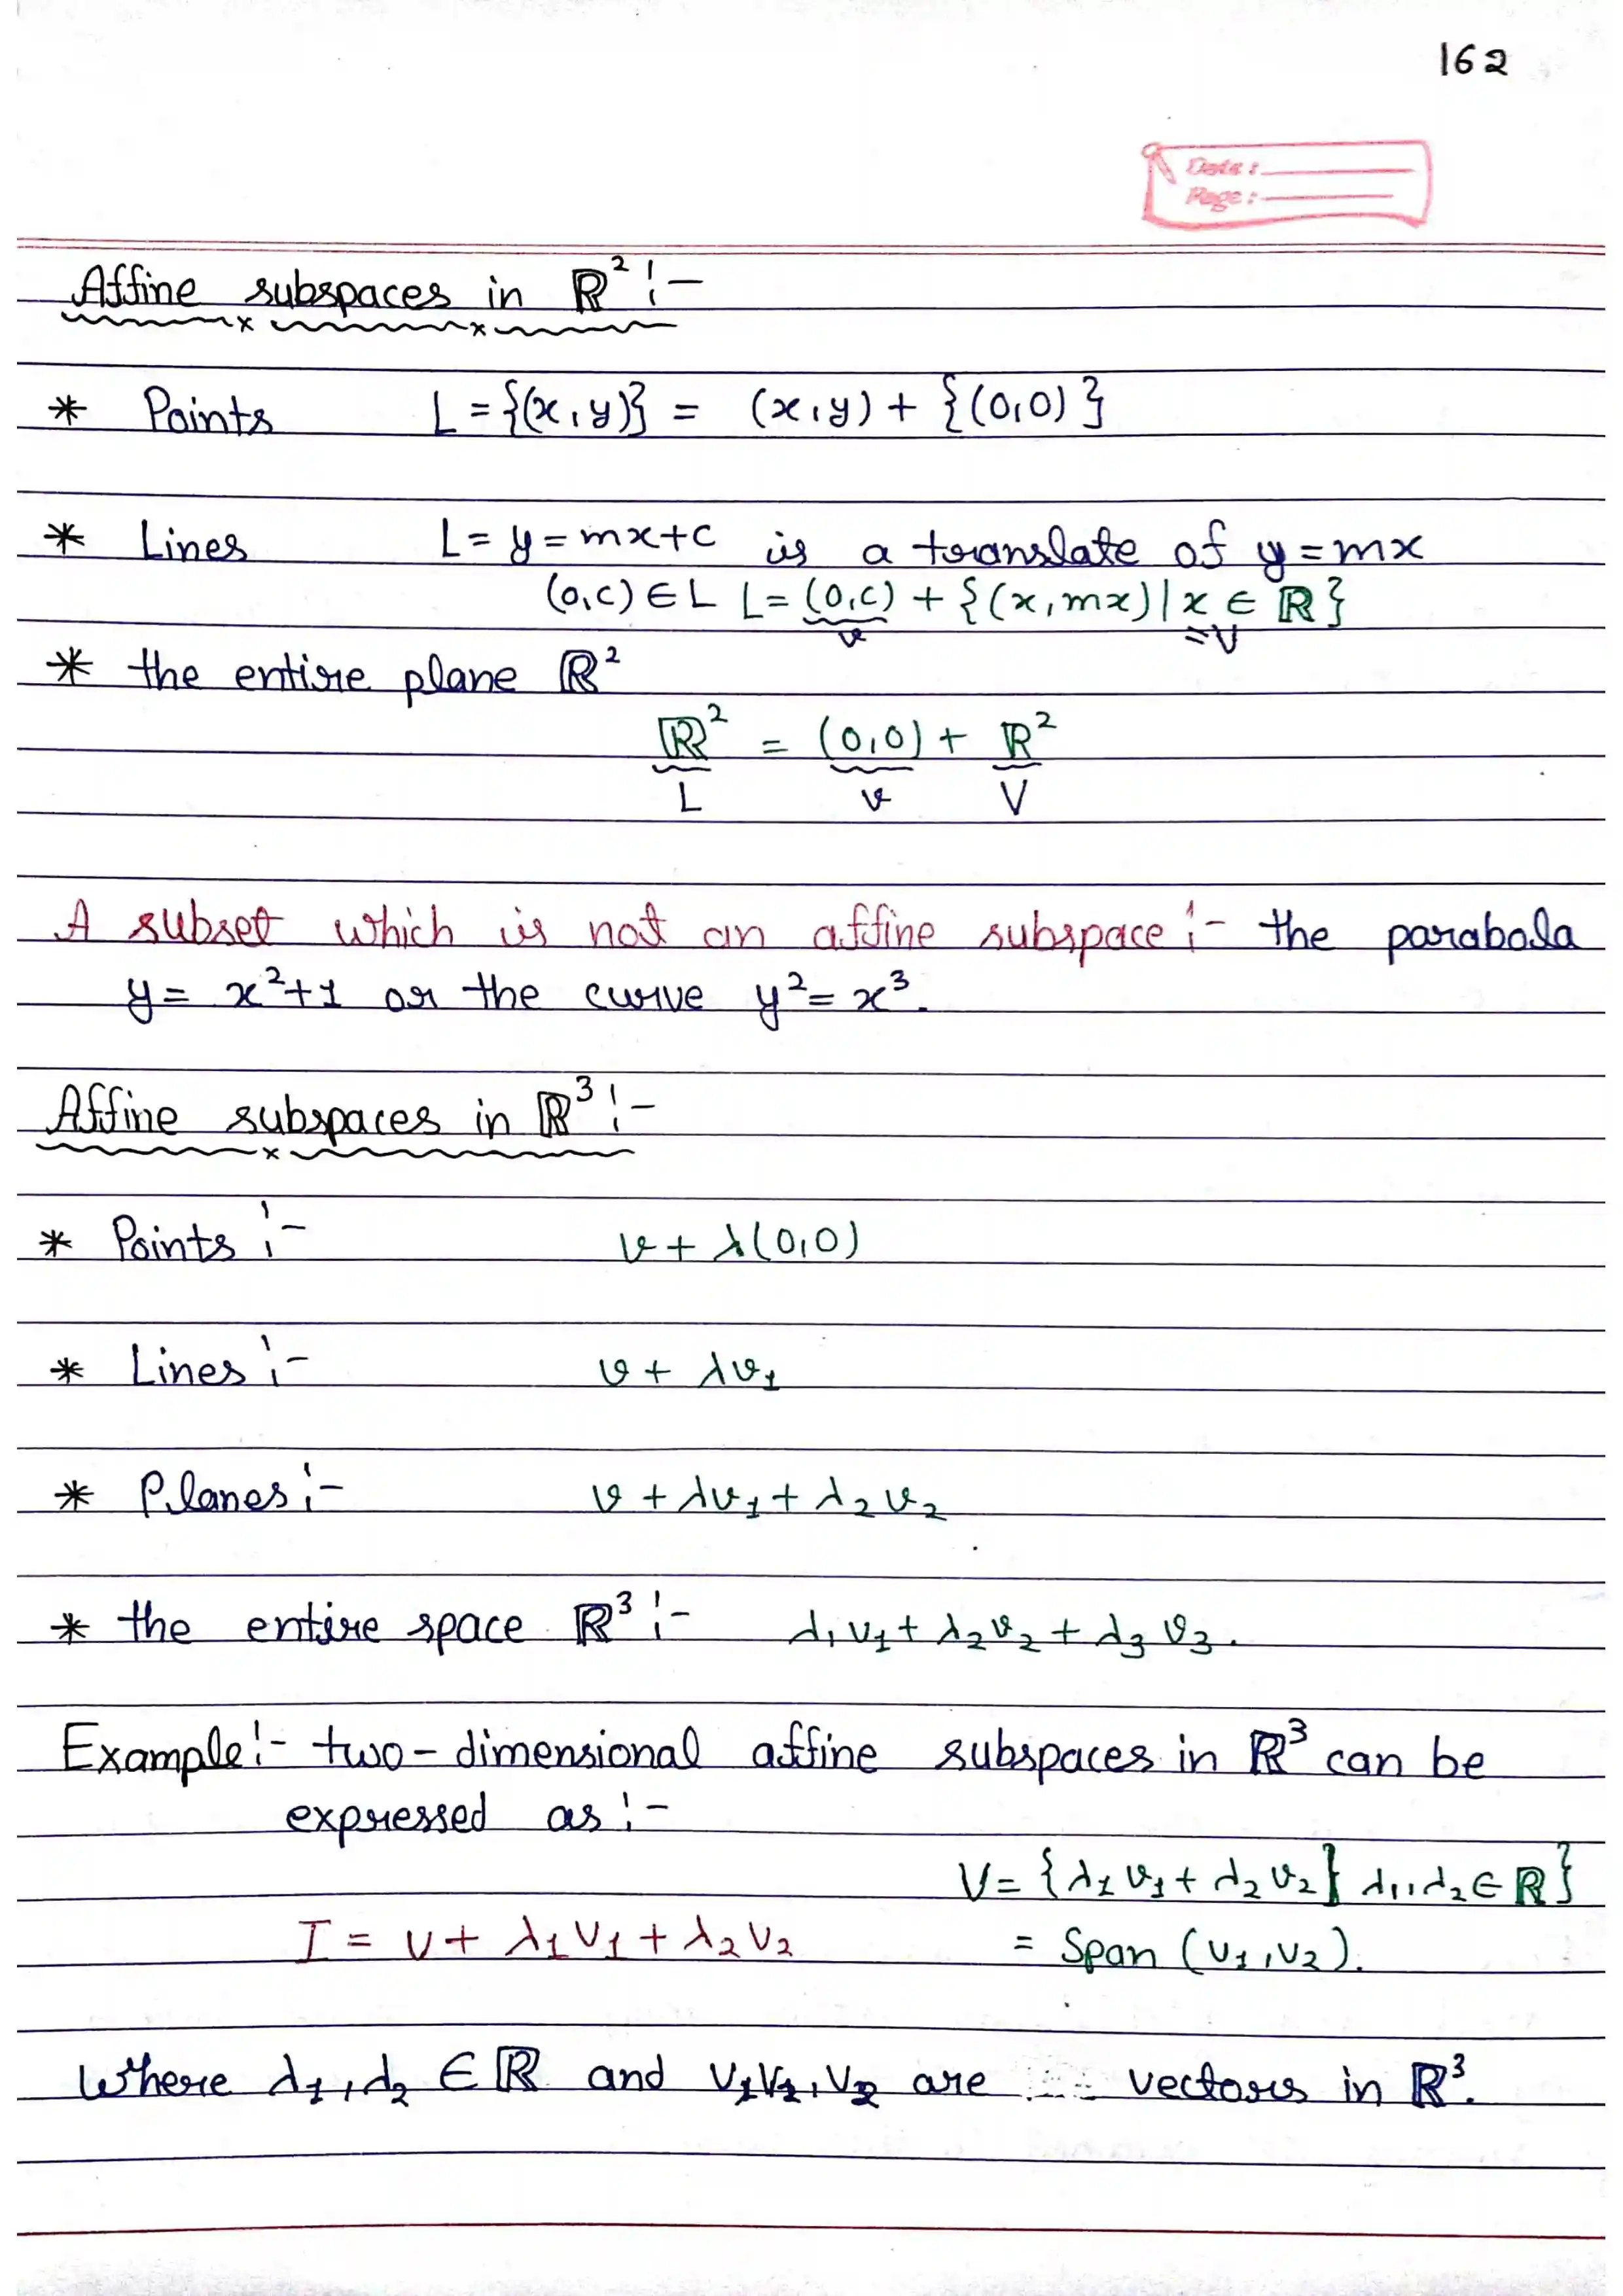 162
Date :
Page :
Affine subspaces in ℝ² :-
* Points L = {(x,y)} = (x,y) + {(0,0)}
* Lines L = y = mx+c is a translate of y = mx
(0,c) ∈ L L = (0,c) + {(x,mx) | x ∈ ℝ}
v =V
* the entire plane ℝ²
ℝ² = (0,0) + ℝ²
L v V
A subset which is not an affine subspace :- the parabola
y = x²+1 or the curve y² = x³.
Affine subspaces in ℝ³ :-
* Points :- v + λ(0,0)
* Lines :- v + λv₁
* Planes :- v + λv₁ + λ₂v₂
* the entire space ℝ³ :- λ₁v₁ + λ₂v₂ + λ₃v₃.
Example :- two-dimensional affine subspaces in ℝ³ can be
expressed as :-
V = {λ₁v₁ + λ₂v₂ | λ₁,λ₂ ∈ ℝ}
I = v + λ₁v₁ + λ₂v₂ = Span (v₁,v₂).
Where λ₁,λ₂ ∈ ℝ and v, v₁, v₂ are vectors in ℝ³.